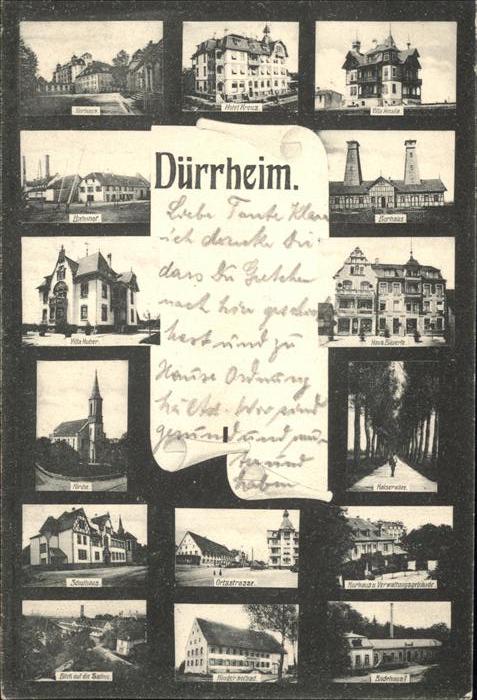 Kurhaus.
Hotel Kreuz
Villa Amalie
Dürrheim.
Bahnhof
Borhaus
Liebe Tante Klara
ich danke Dir
dass Du Gretchen
nach hier geschickt
hast und zu
Hause Ordnung
hältst. Wir sind
gesund und mun-
ter und
haben
Villa Huber.
Haus Bäuerle
Kirche.
Kaiserallee.
Schulhaus.
Ortsstrasse.
Kurhaus u. Verwaltungsgebäude.
Blick auf die Saline
Kindersolbad.
Badehaus I